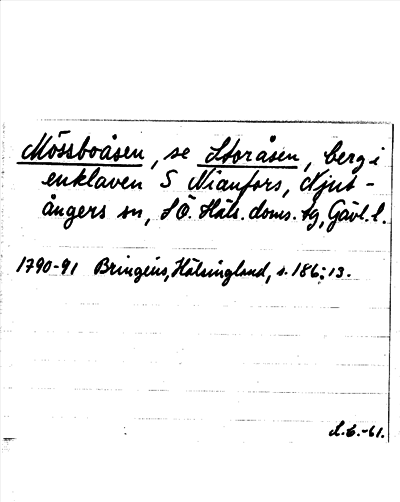 Mössboåsen, se Storåsen, berg i
enklaven S Nianfors, Njut-
ångers sn, SÖ. Häls. doms. tg, Gävl. l.
1790-91 Bringéus, Hälsingland, s. 186:13.
-61.